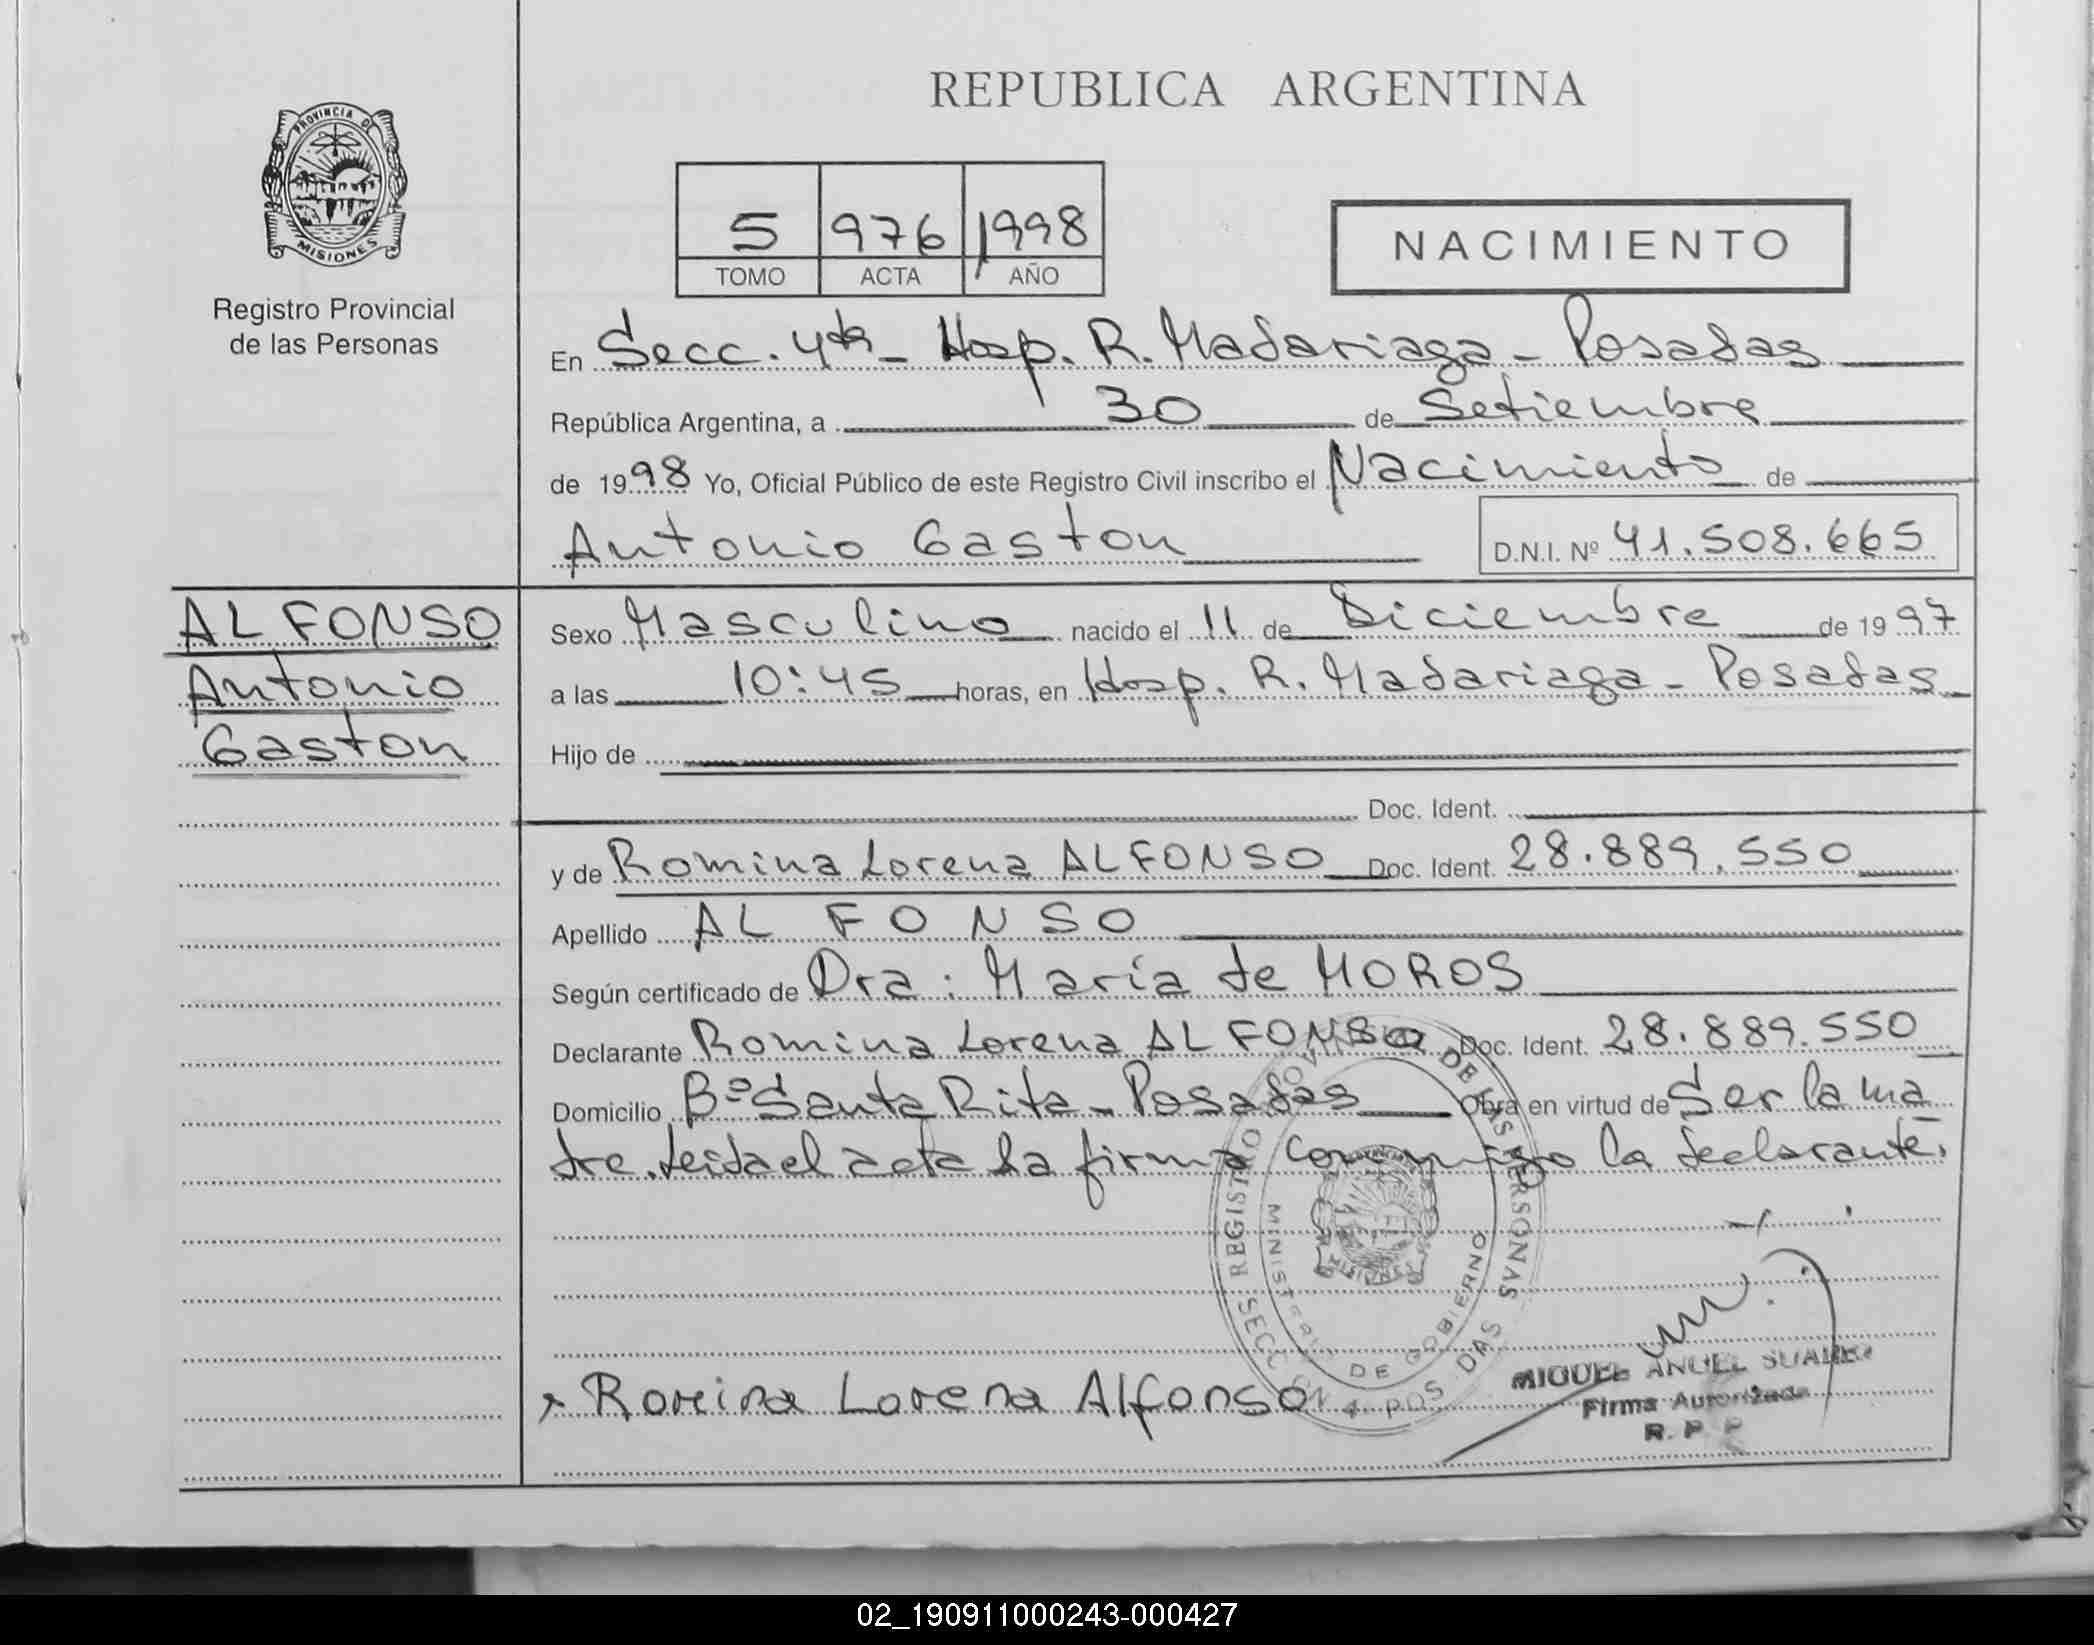 REPUBLICA ARGENTINA
PROVINCIA DE
MISIONES
Registro Provincial
de las Personas
5 976 1998
TOMO ACTA AÑO
NACIMIENTO
En Secc. 4ta - Hosp. R. Madariaga - Posadas
República Argentina, a 30 de Setiembre
de 1998 Yo, Oficial Público de este Registro Civil inscribo el Nacimiento de
Antonio Gaston
D.N.I. Nº 41.508.665
ALFONSO
Antonio
Gaston
Sexo Masculino nacido el 11 de Diciembre de 1997
a las 10:45 horas, en Hosp. R. Madariaga - Posadas
Hijo de
Doc. Ident.
y de Romina Lorena ALFONSO Doc. Ident. 28.889.550
Apellido ALFONSO
Según certificado de Dra: María de MOROS
Declarante Romina Lorena ALFONSO Doc. Ident. 28.889.550
Domicilio Bº Santa Rita - Posadas Obra en virtud de Ser la ma
dre. Leida el acta la firma conmigo la declarante.
REGISTRO DE LAS PERSONAS
MINISTERIO DE GOBIERNO
MISIONES
Romina Lorena Alfonso
MIGUEL ANGEL SUAREZ
Firma Autorizada
R. P. P
02_190911000243-000427